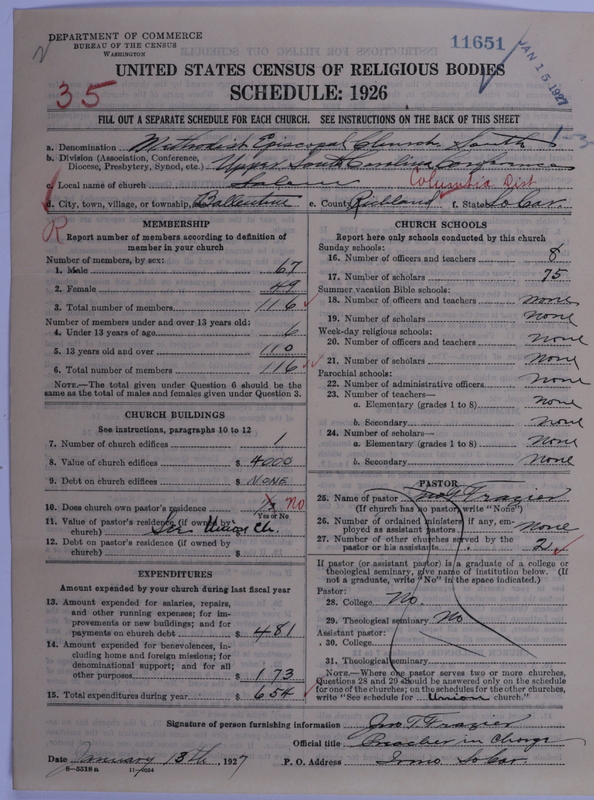 DEPARTMENT OF COMMERCE
BUREAU OF THE CENSUS
WASHINGTON
11651
JAN 15 1927
UNITED STATES CENSUS OF RELIGIOUS BODIES
SCHEDULE: 1926
35
FILL OUT A SEPARATE SCHEDULE FOR EACH CHURCH. SEE INSTRUCTIONS ON THE BACK OF THIS SHEET
a. Denomination Methodist Episcopal Church, South
b. Division (Association, Conference, Diocese, Presbytery, Synod, etc.) Upper South Carolina Conference
c. Local name of church Salem Columbia Dist
d. City, town, village, or township Ballentine e. County Richland f. State So Car.
R
MEMBERSHIP
Report number of members according to definition of
member in your church
Number of members, by sex:
1. Male 67
2. Female 49
3. Total number of members 116
Number of members under and over 13 years old:
4. Under 13 years of age 6
5. 13 years old and over 110
6. Total number of members 116
NOTE.—The total given under Question 6 should be the
same as the total of males and females given under Question 3.
CHURCH BUILDINGS
See instructions, paragraphs 10 to 12
7. Number of church edifices 1
8. Value of church edifices $ 4000
9. Debt on church edifices $ NONE
10. Does church own pastor's residence No
Yes or No
11. Value of pastor's residence (if owned by
church) $ See Union Ch.
12. Debt on pastor's residence (if owned by
church) $
EXPENDITURES
Amount expended by your church during last fiscal year
13. Amount expended for salaries, repairs,
and other running expenses; for im-
provements or new buildings; and for
payments on church debt $ 481
14. Amount expended for benevolences, in-
cluding home and foreign missions; for
denominational support; and for all
other purposes $ 173
15. Total expenditures during year $ 654
CHURCH SCHOOLS
Report here only schools conducted by this church
Sunday schools:
16. Number of officers and teachers 8
17. Number of scholars 75
Summer vacation Bible schools:
18. Number of officers and teachers none
19. Number of scholars none
Week-day religious schools:
20. Number of officers and teachers none
21. Number of scholars none
Parochial schools:
22. Number of administrative officers none
23. Number of teachers—
a. Elementary (grades 1 to 8) none
b. Secondary none
24. Number of scholars—
a. Elementary (grades 1 to 8) none
b. Secondary none
PASTOR
25. Name of pastor Jno T Frazier
(If church has no pastor, write "None")
26. Number of ordained ministers if any, em-
ployed as assistant pastors none
27. Number of other churches served by the
pastor or his assistants 2
If pastor (or assistant pastor) is a graduate of a college or
theological seminary, give name of institution below. (If
not a graduate, write "No" in the space indicated.)
Pastor:
28. College No.
29. Theological seminary No
Assistant pastor:
30. College
31. Theological seminary
NOTE.—Where one pastor serves two or more churches,
Questions 28 and 29 should be answered only on the schedule
for one of the churches; on the schedules for the other churches,
write "See schedule for Union church."
Signature of person furnishing information Jno T. Frazier
Official title Preacher in Charge
Date January 13th, 1927 P. O. Address Irmo So Car.
8-5518a 11-9034